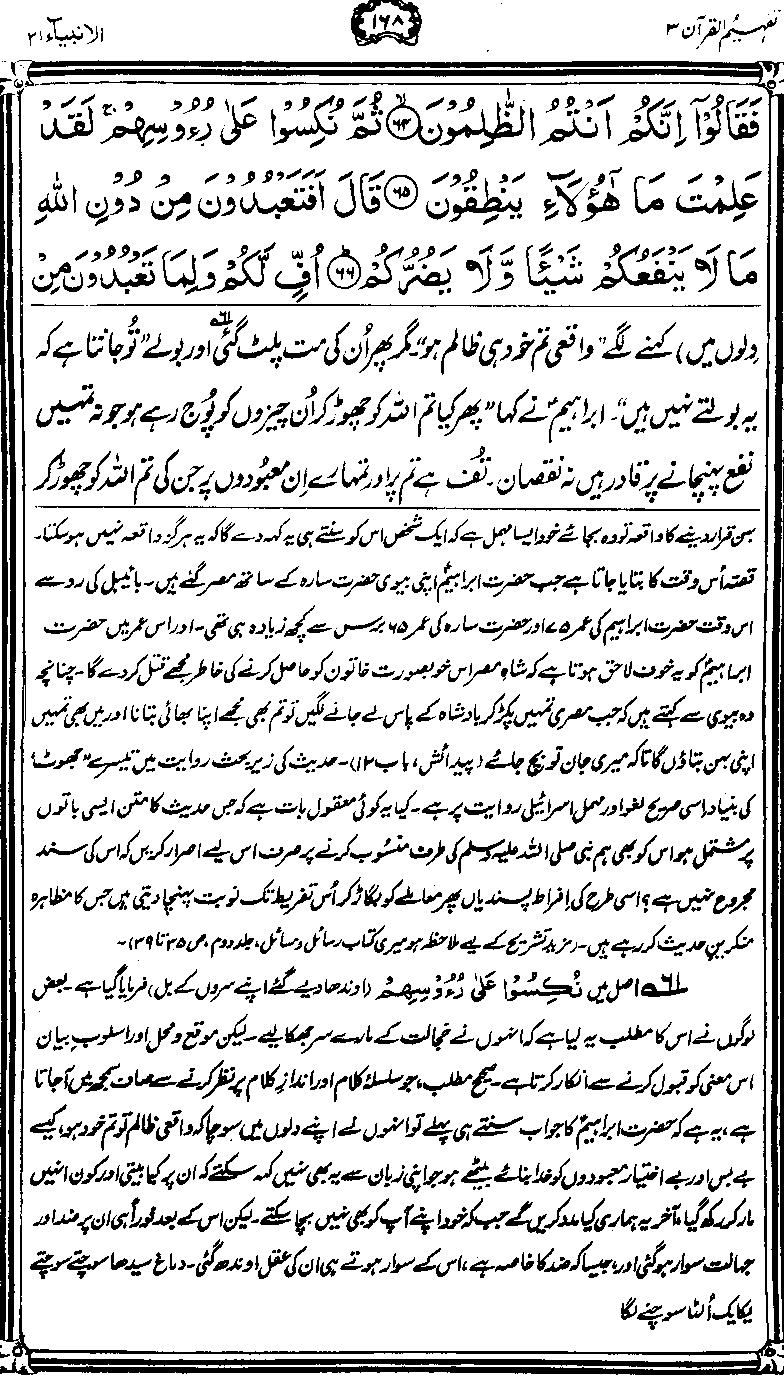 تفہیم القرآن ۳
۱۶۸
الانبیاء ۲۱
فَقَالُوْٓا اِنَّكُمْ اَنْتُمُ الظّٰلِمُوْنَ ﴿۶۴﴾ ثُمَّ نُكِسُوْا عَلٰى رُءُوْسِهِمْ ۚ لَقَدْ
عَلِمْتَ مَا هٰٓؤُلَآءِ يَنْطِقُوْنَ ﴿۶۵﴾ قَالَ اَفَتَعْبُدُوْنَ مِنْ دُوْنِ اللّٰهِ
مَا لَا يَنْفَعُكُمْ شَيْـًٔا وَّلَا يَضُرُّكُمْ ﴿۶۶﴾ اُفٍّ لَّكُمْ وَلِمَا تَعْبُدُوْنَ مِنْ
دلوں میں) کہنے لگے ”واقعی تم خود ہی ظالم ہو“۔ مگر پھر اُن کی مت پلٹ گئی ۶۱؎ اور بولے ”تُو جانتا ہے کہ
یہ بولتے نہیں ہیں“۔ ابراہیمؑ نے کہا ”پھر کیا تم اللہ کو چھوڑ کر اُن چیزوں کو پُوج رہے ہو جو نہ تمہیں
نفع پہنچانے پر قادر ہیں نہ نقصان۔ تُف ہے تم پر اور تمہارے اِن معبودوں پر جن کی تم اللہ کو چھوڑ کر
بہن قرار دینے کا واقعہ تو وہ بجائے خود ایسا مہمل ہے کہ ایک شخص اس کو سنتے ہی یہ کہہ دے گا کہ یہ ہرگز واقعہ نہیں ہو سکتا۔
قصّہ اُس وقت کا بتایا جاتا ہے جب حضرت ابراہیمؑ اپنی بیوی حضرت سارہ کے ساتھ مصر گئے ہیں۔ بائیبل کی رو سے
اس وقت حضرت ابراہیم کی عمر ۷۵ اور حضرت سارہ کی عمر ۶۵ برس سے کچھ زیادہ ہی تھی۔ اور اس عمر میں حضرت
ابراہیمؑ کو یہ خوف لاحق ہوتا ہے کہ شاہِ مصر اس خوبصورت خاتون کو حاصل کرنے کی خاطر مجھے قتل کر دے گا۔ چنانچہ
وہ بیوی سے کہتے ہیں کہ جب مصری تمہیں پکڑ کر بادشاہ کے پاس لے جانے لگیں تو تم بھی مجھے اپنا بھائی بتانا اور میں بھی تمہیں
اپنی بہن بتاؤں گا تاکہ میری جان تو بچ جائے (پیدائش، باب ۱۲)۔ حدیث کی زیر بحث روایت میں تیسرے ”جھوٹ“
کی بنیاد اسی صریح لغو اور مہمل اسرائیلی روایت پر ہے۔ کیا یہ کوئی معقول بات ہے کہ جس حدیث کا متن ایسی باتوں
پر مشتمل ہو اس کو بھی ہم نبی صلی اللہ علیہ وسلم کی طرف منسُوب کرنے پر صرف اس لیے اصرار کریں کہ اس کی سند
مجروح نہیں ہے؟ اسی طرح کی اِفراط پسندیاں پھر معاملے کو بگاڑ کر اُس تفریط تک نوبت پہنچا دیتی ہیں جس کا مظاہرہ
منکرینِ حدیث کر رہے ہیں۔ (مزید تشریح کے لیے ملاحظہ ہو میری کتاب رسائل و مسائل، جلد دوم، ص ۳۵ تا ۳۹)۔
۶۱؎ اصل میں نُكِسُوْا عَلٰى رُءُوْسِهِمْ (اوندھا دیے گئے اپنے سروں کے بل) فرمایا گیا ہے۔ بعض
لوگوں نے اس کا مطلب یہ لیا ہے کہ انہوں نے خجالت کے مارے سر جھکا لیے۔ لیکن موقع و محل اور اسلوبِ بیان
اس معنی کو قبول کرنے سے انکار کرتا ہے۔ صحیح مطلب، جو سلسلۂ کلام اور اندازِ کلام پر نظر کرنے سے صاف سمجھ میں آ جاتا
ہے، یہ ہے کہ حضرت ابراہیمؑ کا جواب سنتے ہی پہلے تو انہوں نے اپنے دلوں میں سوچا کہ واقعی ظالم تو تم خود ہو، کیسے
بے بس اور بے اختیار معبودوں کو خدا بنائے بیٹھے ہو جو اپنی زبان سے یہ بھی نہیں کہہ سکتے کہ ان پر کیا بیتی اور کون انہیں
مار کر رکھ گیا، آخر یہ ہماری کیا مدد کریں گے جب کہ خود اپنے آپ کو بھی نہیں بچا سکتے۔ لیکن اس کے بعد فوراً ہی ان پر ضد اور
جہالت سوار ہو گئی اور، جیسا کہ ضد کا خاصہ ہے، اس کے سوار ہوتے ہی ان کی عقل اوندھ گئی۔ دماغ سیدھا سوچتے سوچتے
یکایک اُلٹا سوچنے لگا